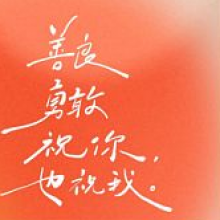 善良
勇敢
祝你，
也祝我。